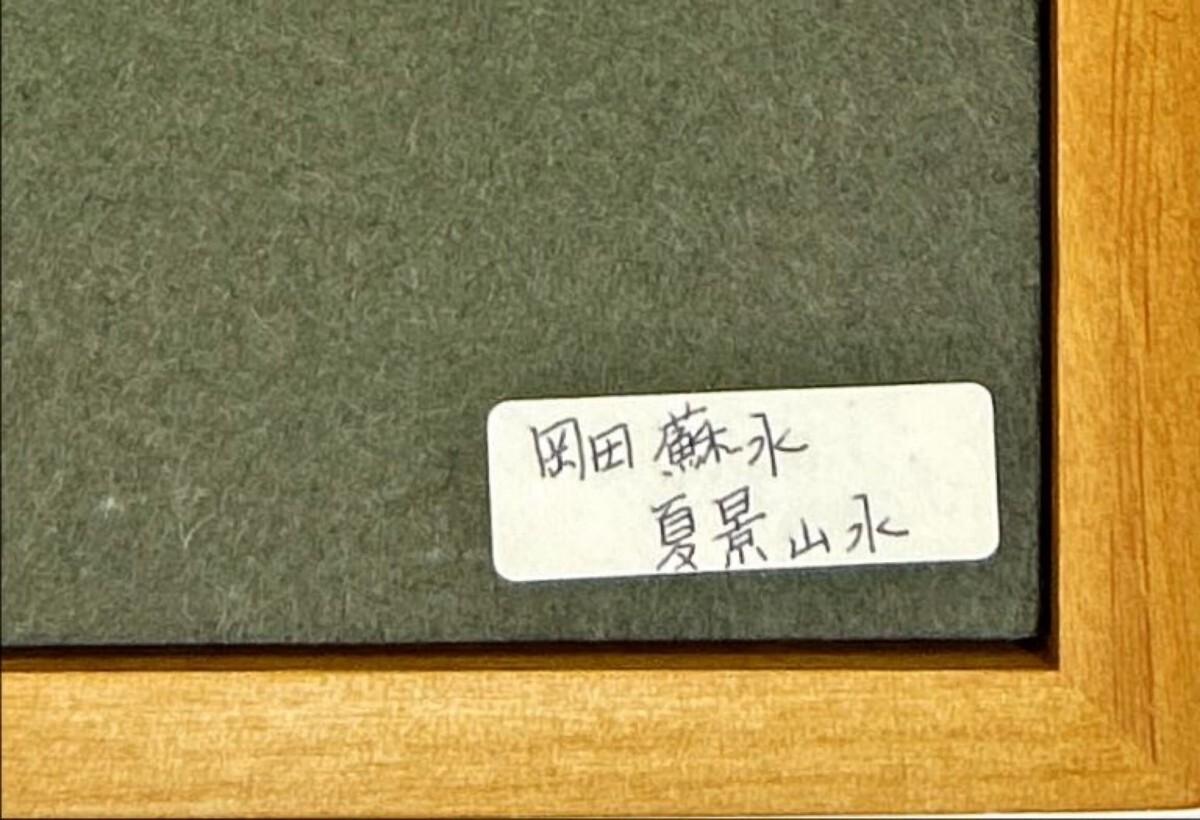 岡田蘇水
夏景山水